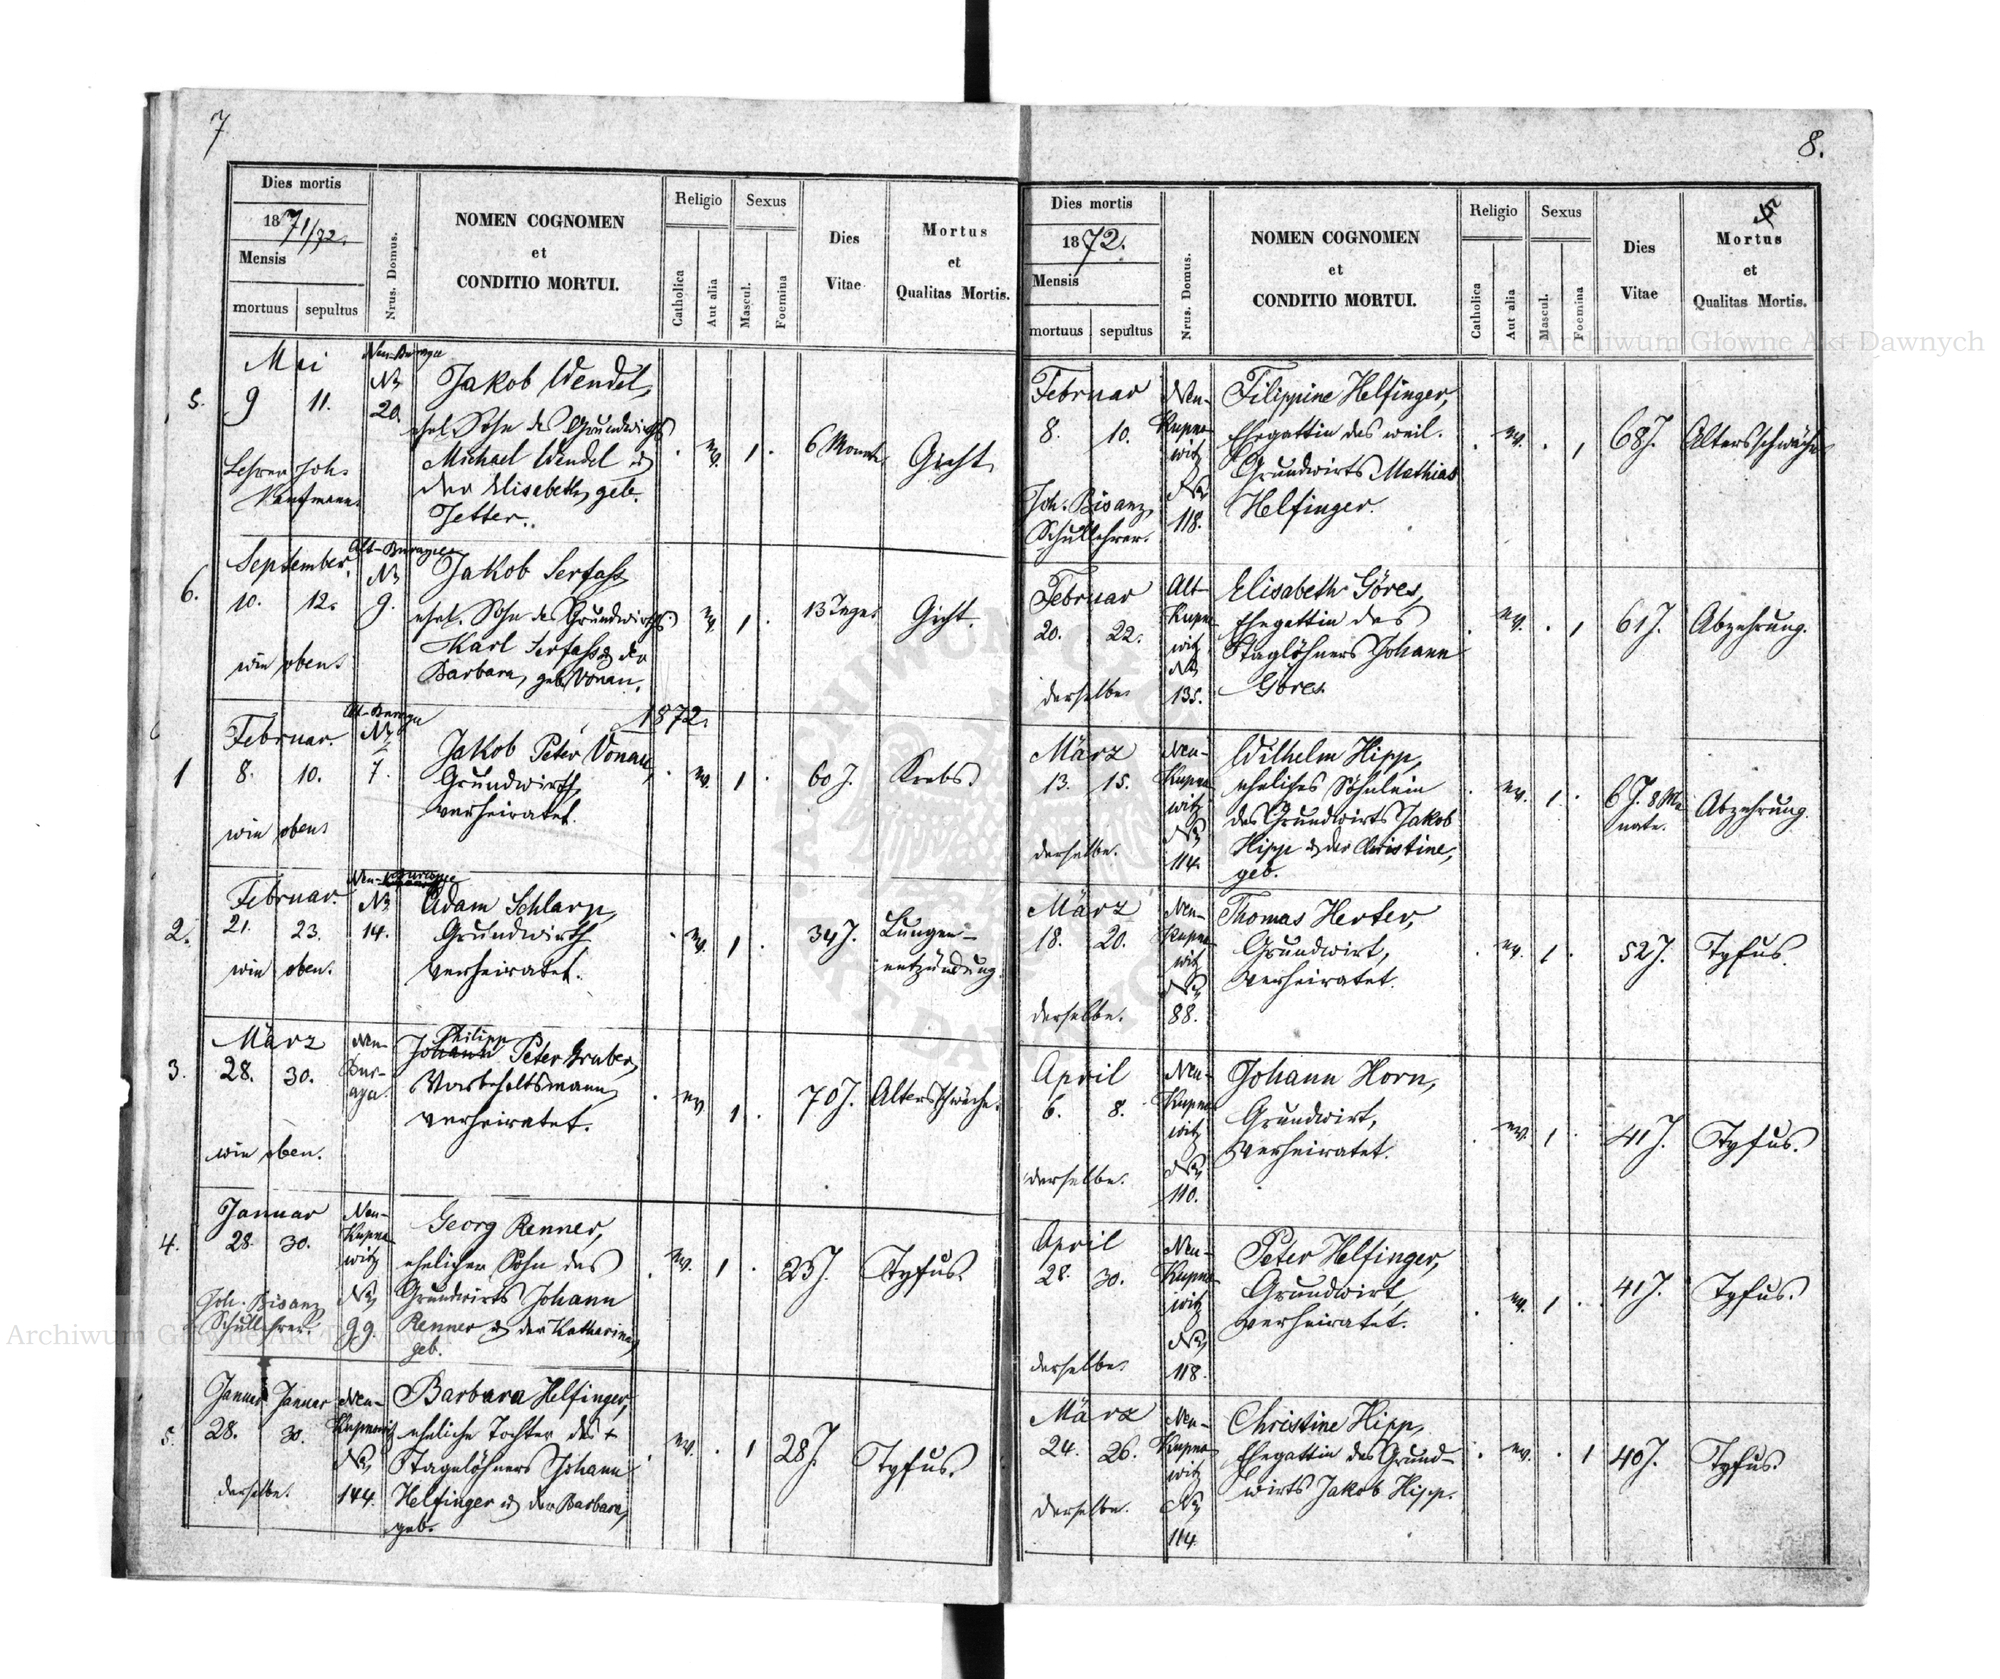 7
Dies mortis
1871/72.
Mensis
mortuus sepultus
Nrus. Domus.
NOMEN COGNOMEN
et
CONDITIO MORTUI.
Religio
Catholica
Aut alia
Sexus
Mascul.
Foemina
Dies
Vitae
Mortus
et
Qualitas Mortis.
5.
Mai
9 11.
Lehrer Joh.
Kaufmann.
Neu-Buraga
No
20.
Jakob Wendel,
ehel. Sohn des Grundwirths
Michael Wendel u
der Elisabeth, geb.
Jetter.
. ev. 1 .
6 Monate
Gicht.
6.
September.
10. 12.
wie oben.
No
9.
Jakob Serfass
ehel. Sohn des Grundwirths
Karl Serfass u der
Barbara, geb. Vonau.
ev. 1 .
13 Tage.
Gicht.
1872.
1
Februar.
8. 10.
wie oben
Alt-Buraga
No
7.
Jakob Peter Vonau,
Grundwirth,
verheiratet.
. ev. 1 .
60 J.
Krebs
2.
Februar.
21. 23.
wie oben.
No
14.
Adam Schlarp,
Grundwirth
verheiratet.
. ev. 1 .
34 J.
Lungen-
entzündung.
3.
März
28. 30.
wie oben.
Neu-
Bur-
aga.
Philipp
Johann Peter Gruber,
Vorbehaltsmann,
verheiratet.
. ev. 1 .
70 J.
Altersschwäche.
4.
Januar
28. 30.
Joh. Bisanz
Schullehrer.
Neu-
Kupno-
witz
No
99.
Georg Renner,
ehelicher Sohn des
Grundwirts Johann
Renner u der Katharina,
geb.
. ev. 1 .
25 J.
Tyfus.
5.
Januar Januar
28. 30.
derselbe.
Neu-
Kupnowitz
No
144.
Barbara Helfinger,
eheliche Tochter des +
Taglöhners Johann
Helfinger u der Barbara,
geb.
. ev. . 1
28 J.
Tyfus.
8.
Dies mortis
1872.
Mensis
mortuus sepultus
Nrus. Domus.
NOMEN COGNOMEN
et
CONDITIO MORTUI.
Religio
Catholica
Aut alia
Sexus
Mascul.
Foemina
Dies
Vitae
Mortus
et
Qualitas Mortis.
Februar
8. 10.
Joh. Bisanz,
Schullehrer.
Neu-
Kupno-
witz
No
118.
Filippine Helfinger,
Ehegattin des weil.
Grundwirts Mathias
Helfinger.
. ev. . 1
68 J.
Altersschwäche
Februar
20. 22.
derselbe
Alt-
Kupno-
witz
No
135.
Elisabeth Göres,
Ehegattin des
Taglöhners Johann
Göres
. ev. . 1
61 J.
Abzehrung.
März
13. 15.
derselbe.
Neu-
Kupno-
witz
No
114.
Wilhelm Hipp,
eheliches Söhnlein
des Grundwirts Jakob
Hipp u der Christine,
geb.
. ev. 1 .
6 J. 8 Mo
nate.
Abzehrung.
März
18. 20.
derselbe.
Neu-
Kupno-
witz
No
88.
Thomas Herter,
Grundwirt,
verheiratet.
. ev. 1 .
52 J.
Tyfus.
April
6. 8.
derselbe.
Neu-
Kupno-
witz
No
110.
Johann Horn,
Grundwirt,
verheiratet.
. ev. 1 .
41 J.
Tyfus.
April
28. 30.
derselbe.
Neu-
Kupno-
witz
No
118.
Peter Helfinger,
Grundwirt,
verheiratet.
. ev. 1 .
41 J.
Tyfus.
März
24. 26.
derselbe.
Neu-
Kupno-
witz
No
114.
Christine Hipp,
Ehegattin des Grund-
wirts Jakob Hipp.
. ev. . 1
40 J.
Tyfus.
Archiwum Główne Akt Dawnych